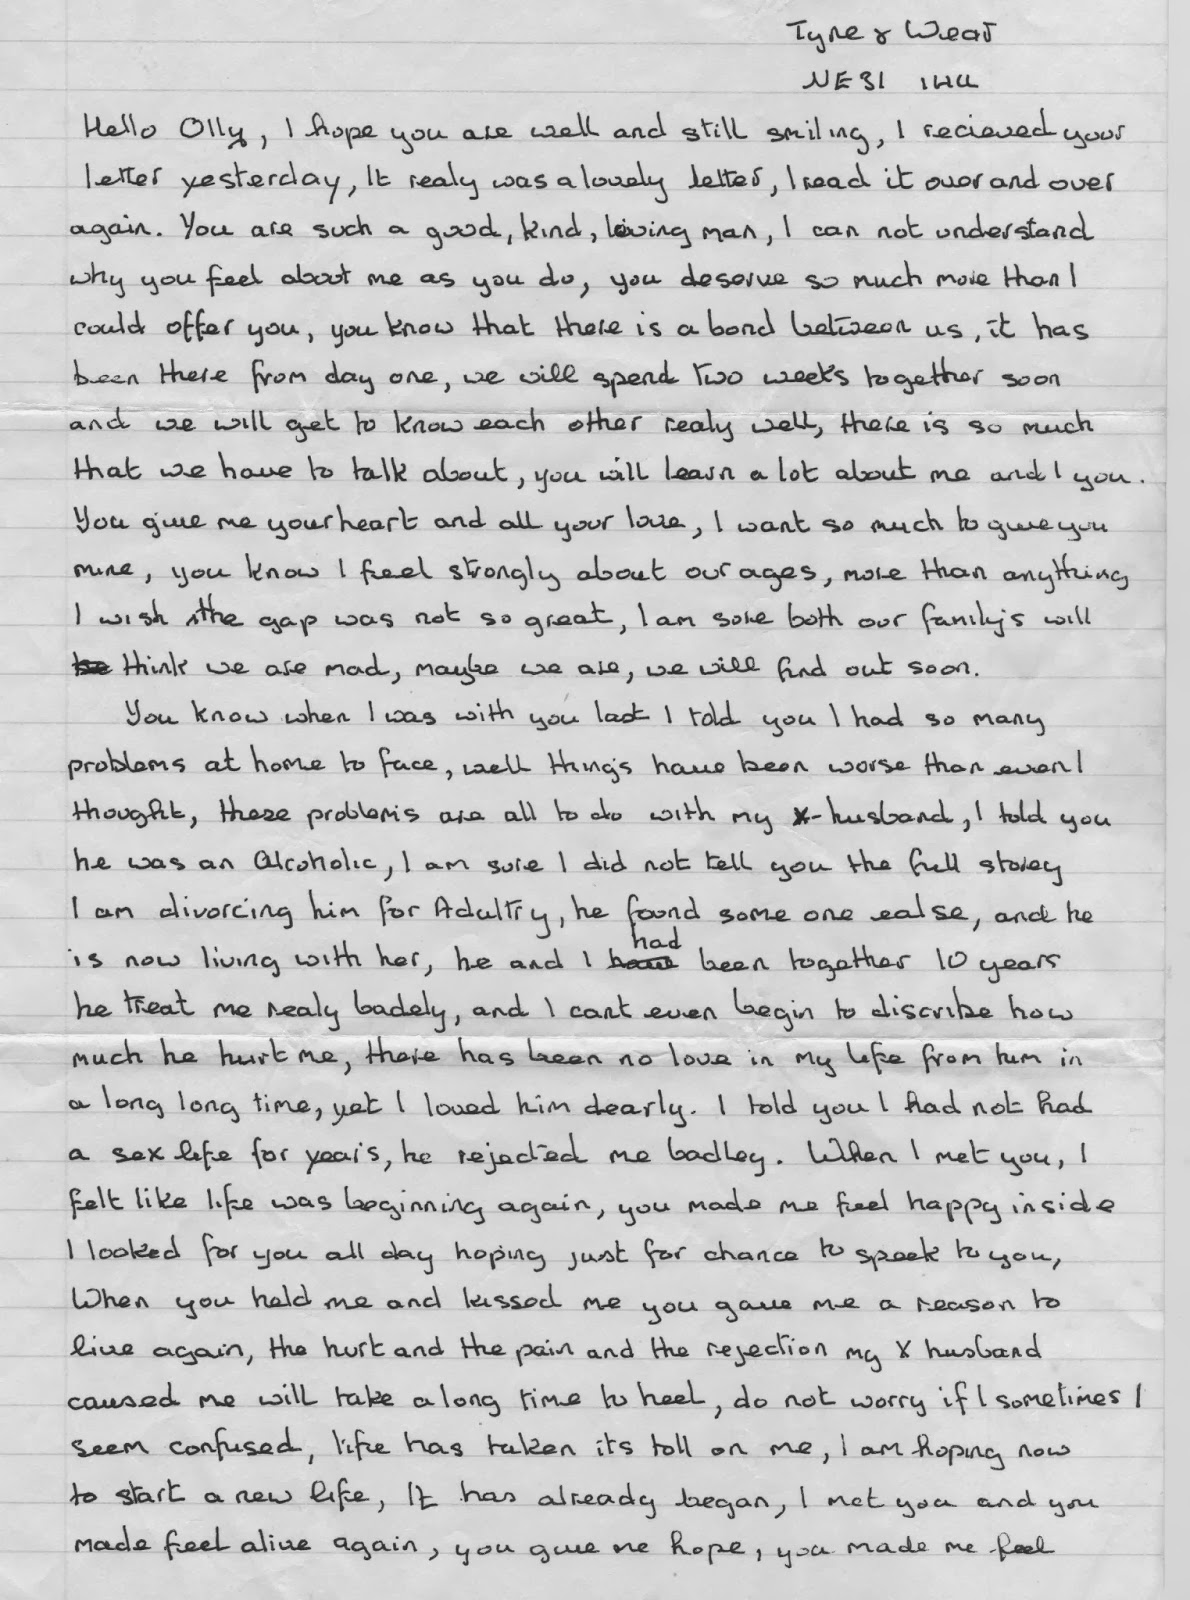 Tyne & Wear
NE31 1HU
Hello Olly, I hope you are well and still smiling, I recieved your
letter yesterday, It realy was a lovely letter, I read it over and over
again. You are such a good, kind, loving man, I can not understand
why you feel about me as you do, you deserve so much more than I
could offer you, you know that there is a bond between us, it has
been there from day one, we will spend two weeks together soon
and we will get to know each other realy well, there is so much
that we have to talk about, you will learn a lot about me and I you.
You give me your heart and all your love, I want so much to give you
mine, you know I feel strongly about our ages, more than anything
I wish the gap was not so great, I am sure both our family's will
be think we are mad, maybe we are, we will find out soon.
You know when I was with you last I told you I had so many
problems at home to face, well things have been worse than even I
thought, these problems are all to do with my X-husband, I told you
he was an Alcoholic, I am sure I did not tell you the full storey
I am divorcing him for Adultry, he found some one ealse, and he
is now living with her, he and I have had been together 10 years
he treat me realy badely, and I cant even begin to discribe how
much he hurt me, there has been no love in my life from him in
a long long time, yet I loved him dearly. I told you I had not had
a sex life for years, he rejected me badley. When I met you, I
felt like life was beginning again, you made me feel happy inside
I looked for you all day hoping just for chance to speek to you,
When you held me and kissed me you gave me a reason to
live again, the hurt and the pain and the rejection my X husband
caused me will take a long time to heel, do not worry if I sometimes I
seem confused, life has taken its toll on me, I am hoping now
to start a new life, It has already began, I met you and you
made feel alive again, you give me hope, you made me feel